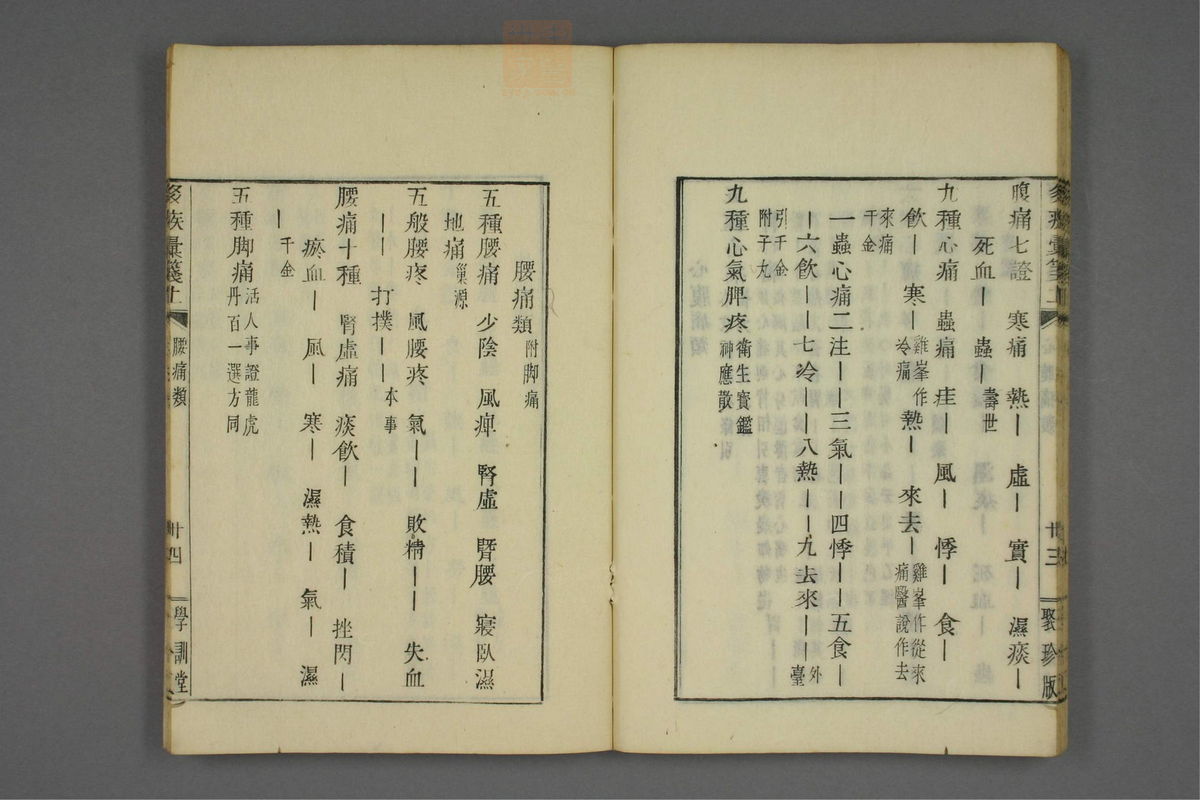 腹痛七證 寒痛 熱｜ 虛｜ 實｜ 濕痰｜
死血｜ 蟲｜壽世
九種心痛 蟲痛 疰｜ 風｜ 悸｜ 食｜
飲｜ 寒｜雞峯作冷痛 熱｜ 來去｜雞峯作從來痛醫說作去
來痛千金
一蟲心痛二注｜｜三氣｜｜四悸｜｜五食｜
｜六飲｜｜七冷｜｜八熱｜｜九去來｜｜外臺
引千金附子丸
九種心氣脾疼衛生寶鑑神應散
廿三
聚珍版
腰痛類附脚痛
五種腰痛 少陰 風痺 腎虛 𦜉腰 寢臥濕
地痛巢源
五般腰疼 風腰疼 氣｜｜ 敗精｜｜ 失血
｜｜ 打撲｜｜本事
腰痛十種 腎虛痛 痰飲｜ 食積｜ 挫閃｜
瘀血｜ 風｜ 寒｜ 濕熱｜ 氣｜ 濕
｜千金
五種脚痛活人事證龍虎丹百一選方同
腰痛類
廿四
學訓堂